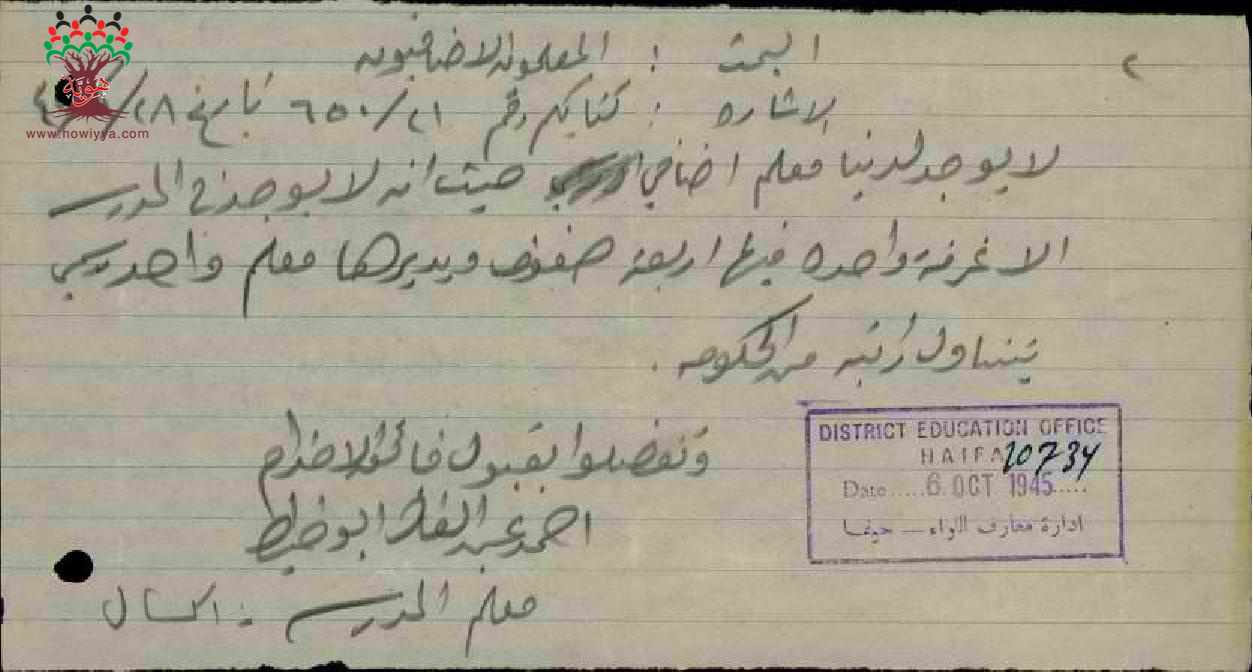 ٢
البحث : المعلمون الاضافيون
الاشارة : كتابكم رقم ٦٥٠/٢١ تاريخ ٢٨/
لا يوجد لدينا معلم اضافي حيث انه لا يوجد في المدرسه
الا غرفة واحده فيها اربعة صفوف ويديرها معلم واحد
يتناول راتبه من الحكومه .
وتفضلوا بقبول فائق الاحترام
احمد عبد الفتاح ابو
معلم المدرسه - اكسال
DISTRICT EDUCATION OFFICE
HAIFA 10734
Date ..... 6 OCT 1945 .....
ادارة معارف اللواء — حيفا
هوية
www.howiyya.com